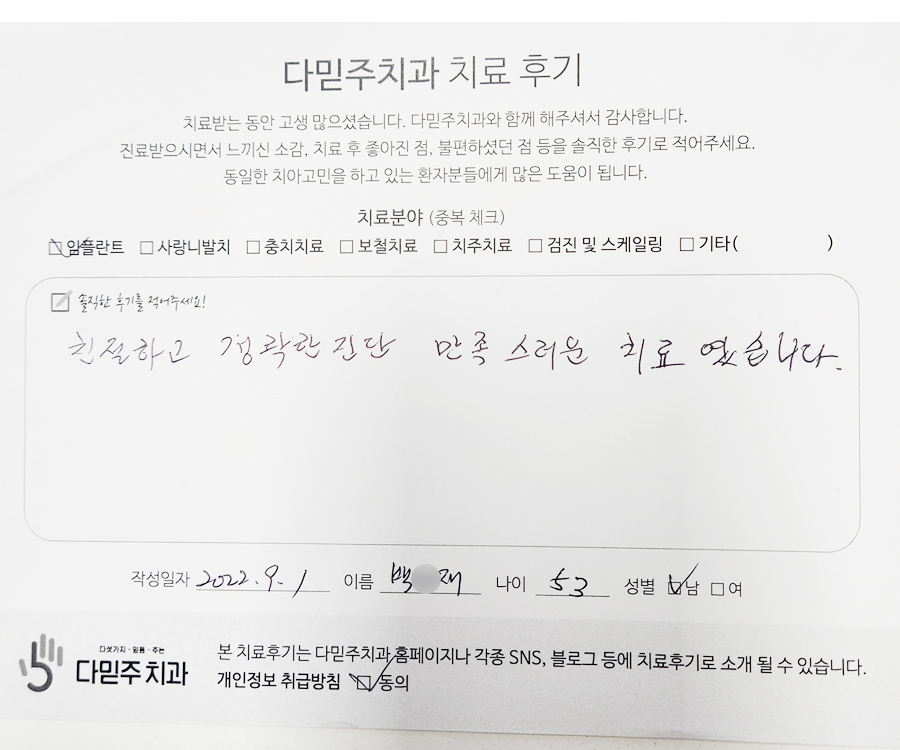 다믿주치과 치료 후기
치료받는 동안 고생 많으셨습니다. 다믿주치과와 함께 해주셔서 감사합니다.
진료받으시면서 느끼신 소감, 치료 후 좋아진 점, 불편하셨던 점 등을 솔직한 후기로 적어주세요.
동일한 치아고민을 하고 있는 환자분들에게 많은 도움이 됩니다.
치료분야 (중복 체크)
☑ 임플란트 □ 사랑니발치 □ 충치치료 □ 보철치료 □ 치주치료 □ 검진 및 스케일링 □ 기타( )
솔직한 후기를 적어주세요!
친절하고 정확한 진단 만족 스러운 치료 였습니다.
작성일자 2022. 9. 1 이름 백 재 나이 53 성별 ☑남 □여
다섯가지·믿음·주는
다믿주치과
본 치료후기는 다믿주치과 홈페이지나 각종 SNS, 블로그 등에 치료후기로 소개 될 수 있습니다.
개인정보 취급방침 ☑동의